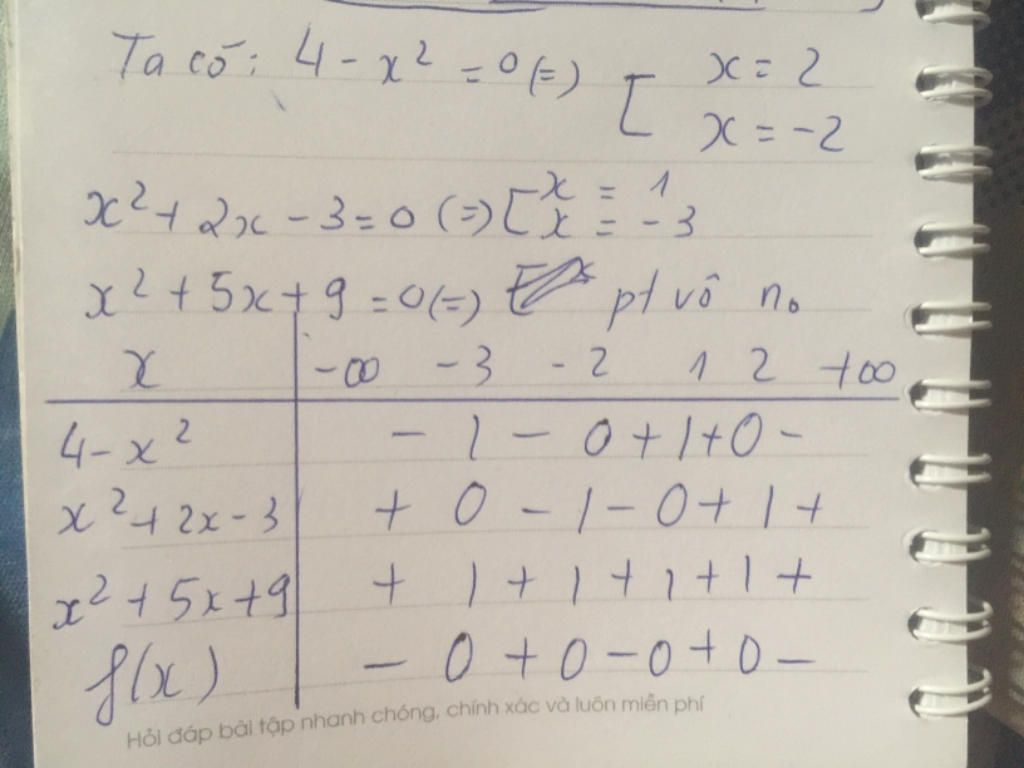 Ta có: 4 - x² = 0 (=) [ x = 2
x = -2
x² + 2x - 3 = 0 (=) [ x = 1
x = -3
x² + 5x + 9 = 0 (=) pt vô n₀
x | -∞ -3 -2 1 2 +∞
4 - x² | - | - 0 + | + 0 -
x² + 2x - 3 | + 0 - | - 0 + | +
x² + 5x + 9 | + | + | + | + | +
f(x) | - 0 + 0 - 0 + 0 -
Hỏi đáp bài tập nhanh chóng, chính xác và luôn miễn phí